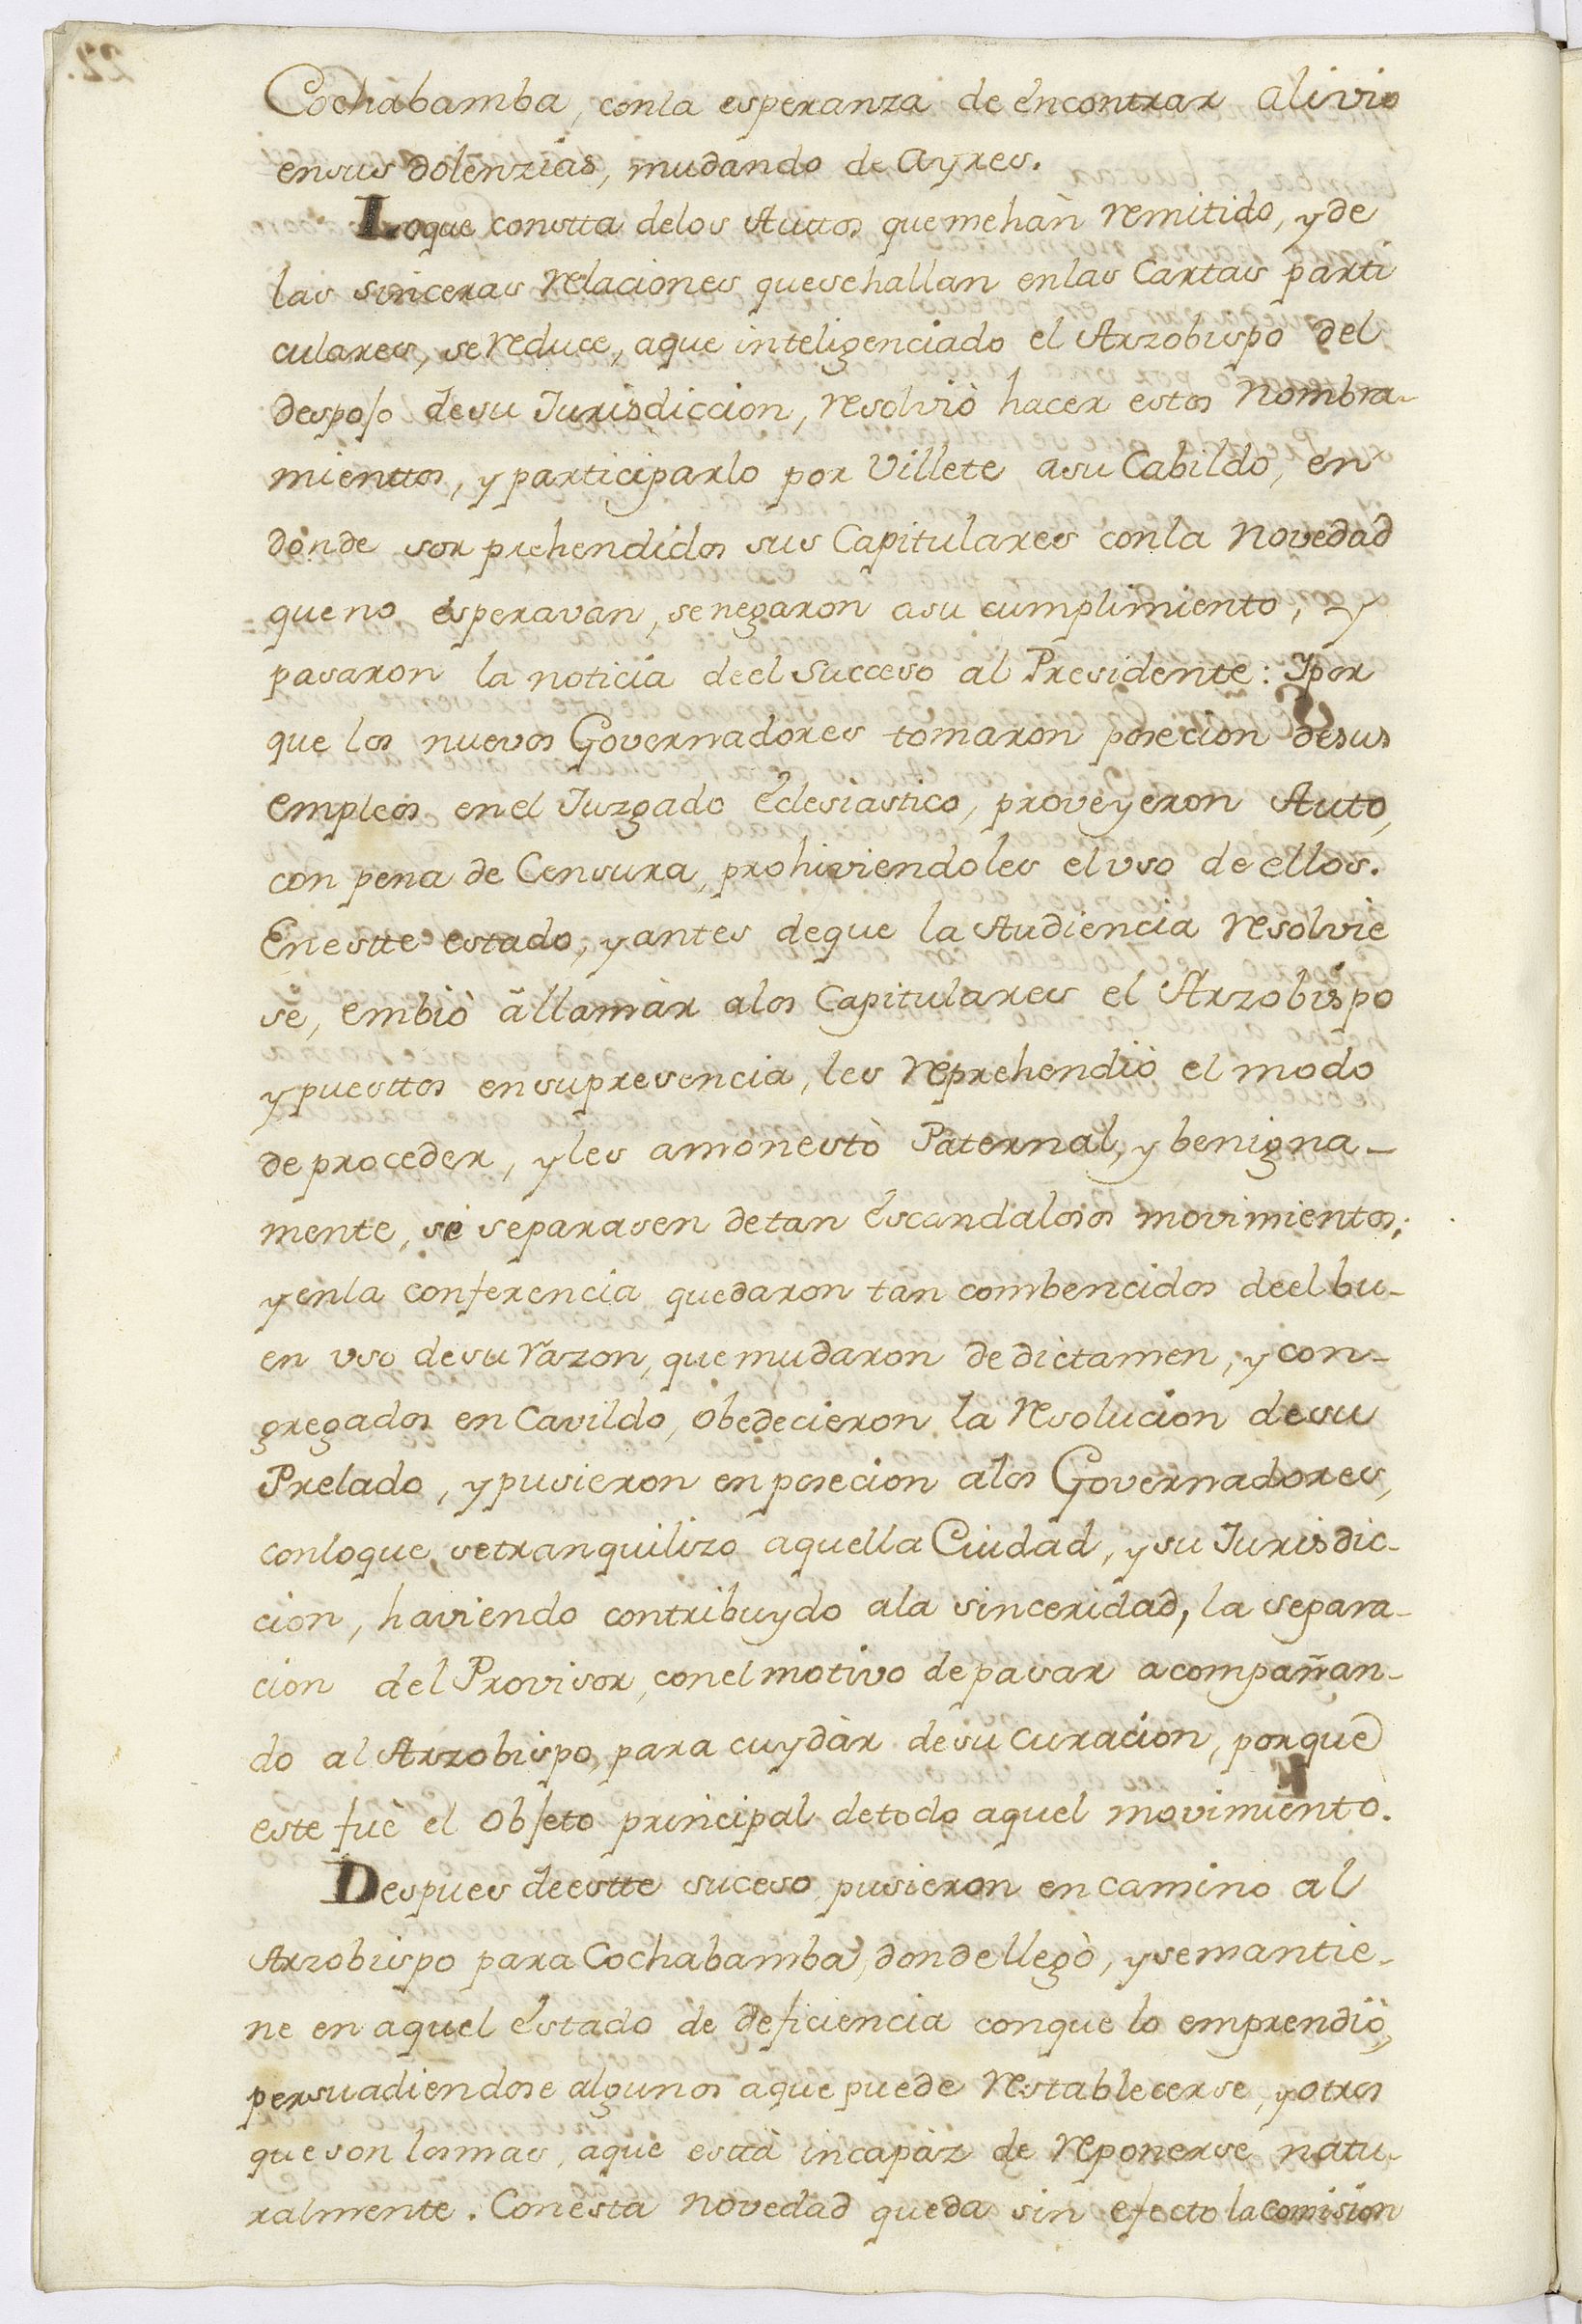 Cochabamba, conla esperanza de encontrar alivio
ensus dolenzias, mudando de Ayres.
Loque constta delos Auttos quemehan remitido, y de
las sinceras relaciones quesehallan enlas Cartas parti
culares, se reduce, aque inteligenciado el Arzobispo del
despojo desu Jurisdiccion, resolviò hacer estos Nombra-
mienttos, y participarlo por Villete asu Cabildo, en
donde sorprehendidos sus Capitulares conla Novedad
que no esperavan, senegaron asu cumplimiento, y
pasaron la noticia deel Succeso al Presidente: Ypor
que los nuevos Governadores tomaron posecion desus
empleos enel Juzgado Eclesiastico, proveyeron Auto,
con pena de Censura, prohiviendoles eluso de ellos.
Enestte estado, y antes deque la Audiencia resolvie
se, embiò à llamàr alos Capitulares el Arzobispo
y puesttos ensupresencia, les reprehendiò el modo
de proceder, y les amonestò Paternal, y benigna-
mente, se separasen detan escandalosos movimientos;
y enla conferencia quedaron tan combencidos deel bu-
en uso desu razon, quemudaron de dictamen, y con-
gregados en Cavildo, obedecieron la resolucion desu
Prelado, y pusieron en posecion alos Governadores,
conloque setranquilizo aquella Ciudad, y su Jurisdic-
cion, haviendo contribuydo ala sinceridad, la separa-
cion del Provisor, conel motivo depasar acompañan-
do al Arzobispo, para cuydàr desu curacion, porque
este fuè el objeto principal detodo aquel movimiento.
Despues deestte suceso pusieron encamino al
Arzobispo para Cochabamba, dondellegò, y semantie-
ne en aquel estado de deficiencia conque lo emprendiò,
persuadiendose algunos aque puede restablecerse, y otros
que son losmas, aque esttà incapàz de reponerse natu-
ralmente. Conesta novedad queda sin efecto la comision